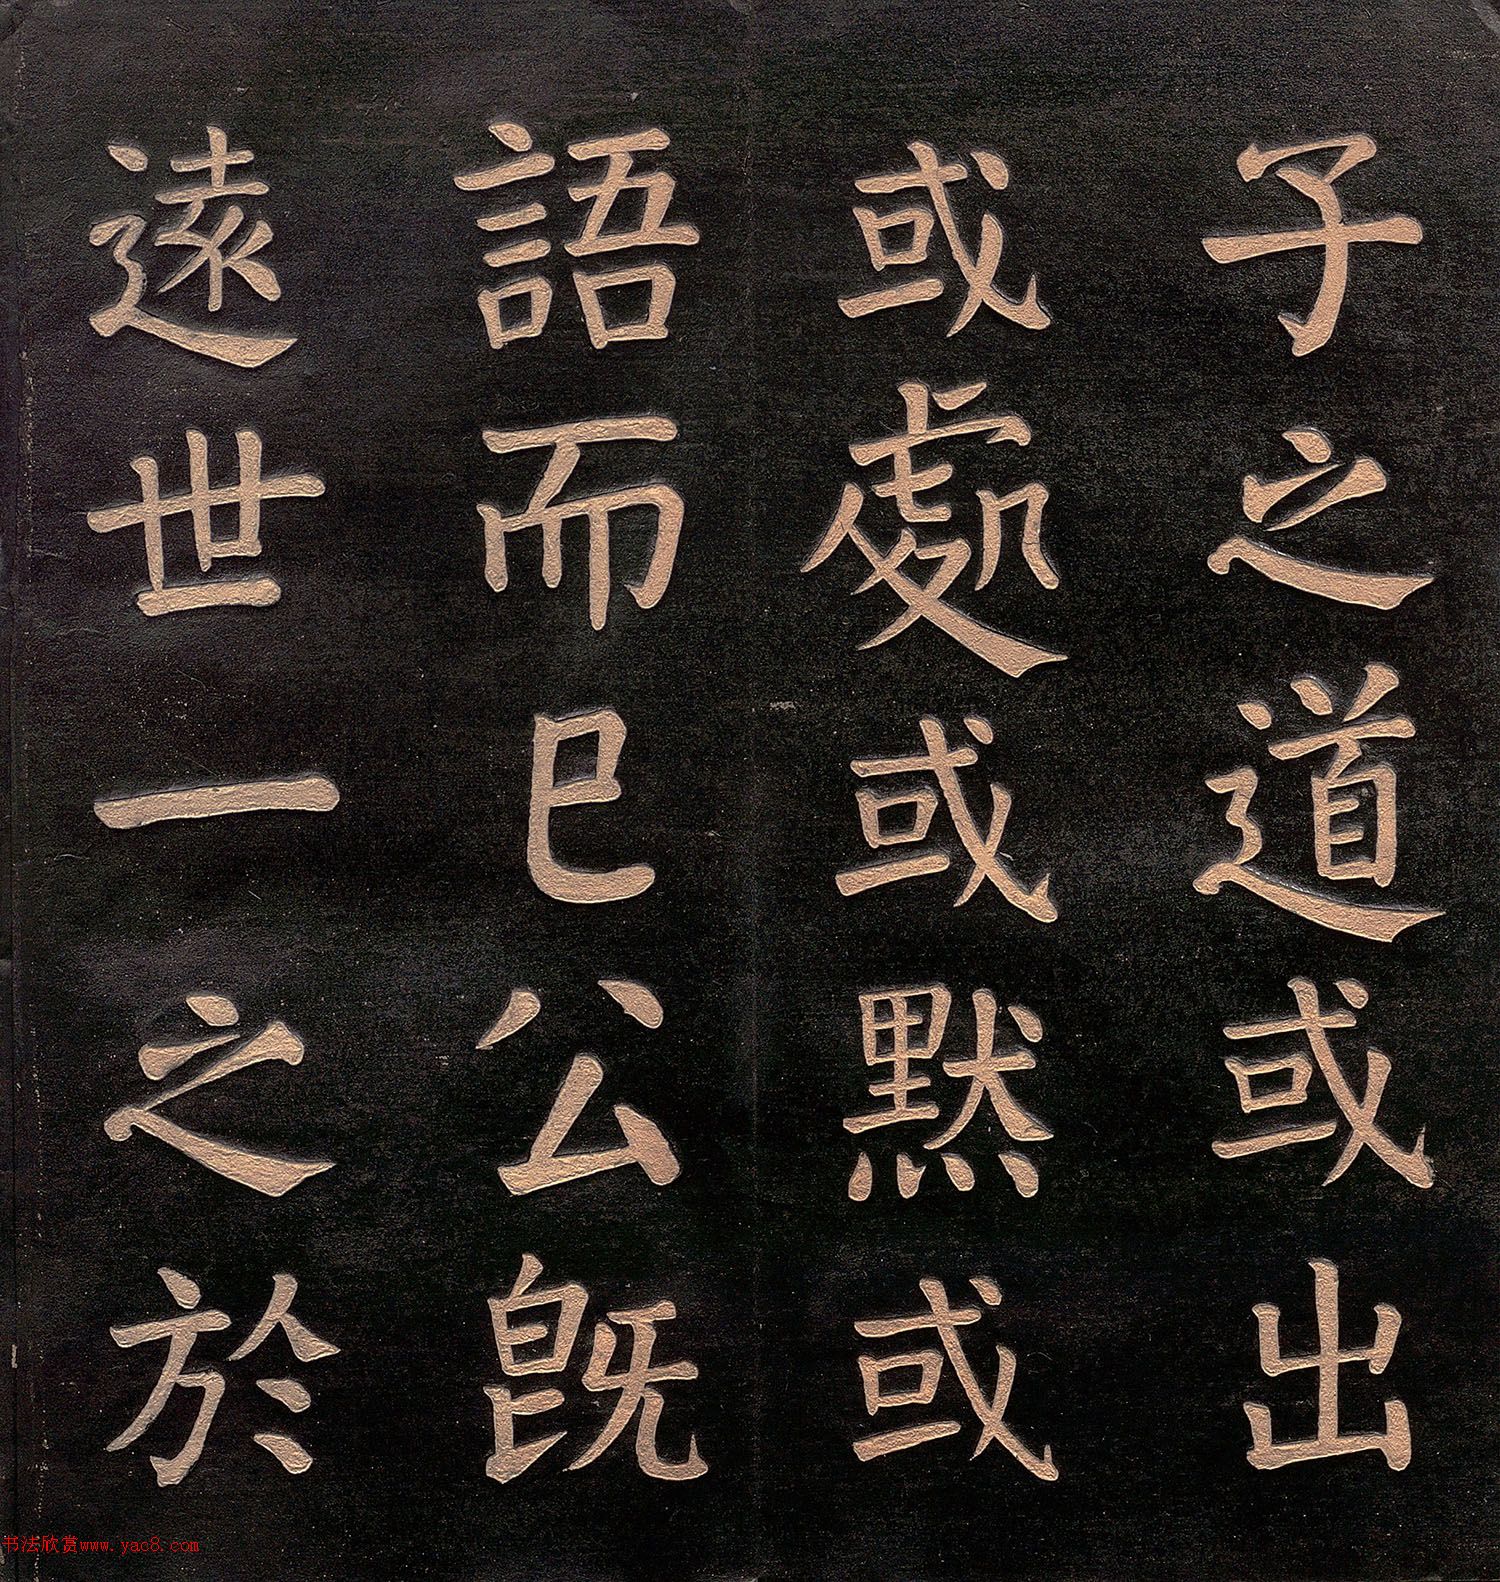 子之道或出
或處或默或
語而已公既
遠世一之於
书法欣赏www.yac8.com